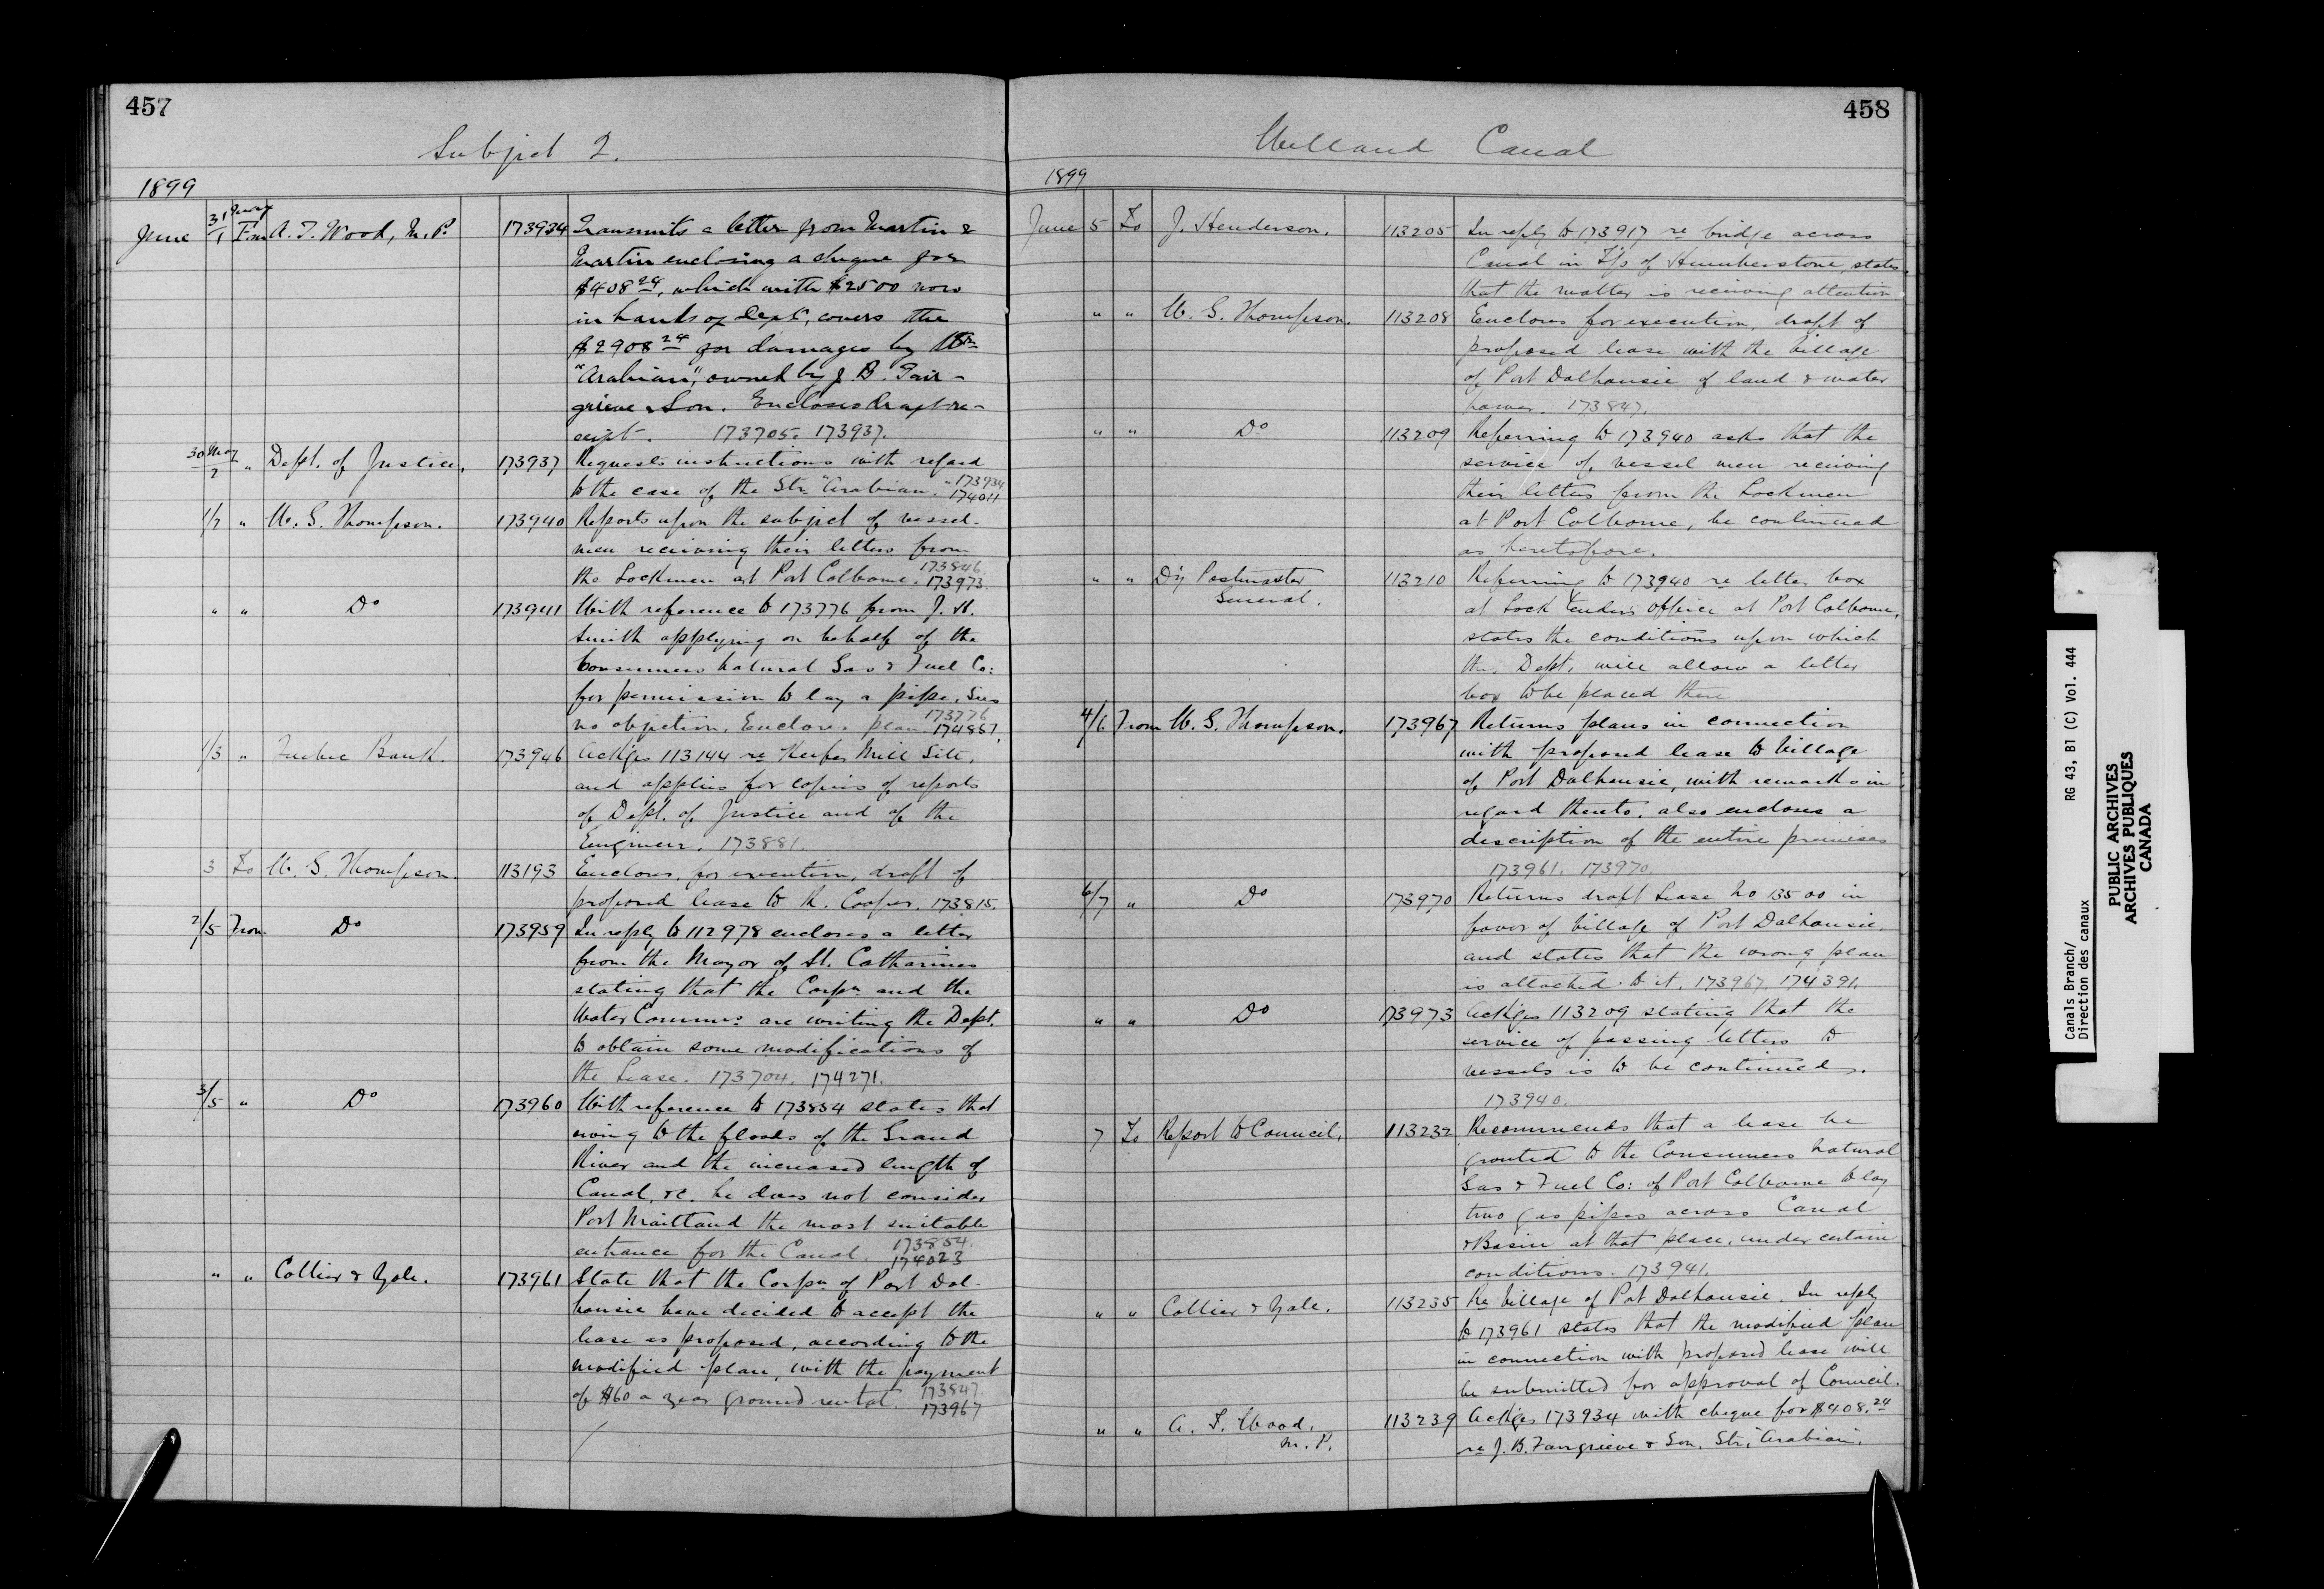 457
Subject 2.
1899
June 31 May/1 From A. T. Wood, M.P. 173934 Transmits a letter from Martin &
Martin enclosing a cheque for
$408 24, which with $2500 now
in hands of Dept, covers the
$2908 24 for damages by Str
"Arabian", owned by J. B. Fair-
grieve & Son. Encloses draft re-
ceipt. 173705. 173937.
30 May/2 " Dept. of Justice, 173937 Requests instructions with regard
to the case of the Str. "Arabian." 173934
174011
1/2 " W. G. Thompson. 173940 Reports upon the subject of vessel-
men receiving their letters from
173846.
the Lockmen at Port Colborne. 173973
" " Do 173941 With reference to 173776 from J. H.
Smith applying on behalf of the
Consumers Natural Gas & Fuel Co:
for permission to lay a pipe. Sees
173776
no objection. Encloses plan. 174857.
1/3 " Quebec Bank. 173946 Ackges 113144 re Keefer Mill Site,
and applies for copies of reports
of Dept. of Justice and of the
Engineer. 173881.
3 To W. G. Thompson. 113193 Encloses, for execution, draft of
proposed lease to R. Cooper. 173815.
2/5 From Do 173959 In reply to 112978 encloses a letter
from the Mayor of St. Catharines
stating that the Corpn and the
Water Commrs. are writing the Dept.
to obtain some modifications of
the Lease. 173704. 174271.
3/5 " Do 173960 With reference to 173854 states that
owing to the floods of the Grand
River and the increased length of
Canal, &c. he does not consider
Port Maitland the most suitable
entrance for the Canal. 173854.
174023
" " Collier & Yale. 173961 State that the Corpn of Port Dal-
housie have decided to accept the
lease as proposed, according to the
modified plan, with the payment
of $60 a year ground rental. 173847.
173967
458
Welland Canal
1899
June 5 To J. Henderson. 113205 In reply to 173917 re bridge across
Canal in T/p of Humberstone, states
that the matter is receiving attention
" " W. G. Thompson. 113208 Encloses for execution, draft of
proposed lease with the Village
of Port Dalhousie of land & water
power. 173847.
" " Do 113209 Referring to 173940 asks that the
service of vessel men receiving
their letters from the Lockmen
at Port Colborne, be continued
as heretofore.
" " D'y Postmaster General. 113210 Referring to 173940 re letter box
at Lock tenders office at Port Colborne,
states the conditions upon which
this Dept. will allow a letter
box to be placed there
4/6 From W. G. Thompson. 173967 Returns plans in connection
with proposed lease to Village
of Port Dalhousie, with remarks in
regard thereto. also encloses a
description of the entire premises
173961. 173970.
6/7 " Do 173970 Returns draft Lease No 13500 in
favor of Village of Port Dalhousie.
and states that the wrong plan
is attached to it. 173967. 174391.
" " Do 173973 Ackges 113209 stating that the
service of passing letters to
vessels is to be continued.
173940.
7 To Report to Council. 113232 Recommends that a lease be
granted to the Consumers Natural
Gas & Fuel Co: of Port Colborne to lay
two gas pipes across Canal
& Basin at that place, under certain
conditions. 173941.
" " Collier & Yale. 113235 Re Village of Port Dalhousie. In reply
to 173961 states that the modified plan
in connection with proposed lease will
be submitted for approval of Council.
" " A. T. Wood, M.P. 113239 Ackges 173934 with cheque for $408.24
re J. B. Fairgrieve & Son. Str. "Arabian".
Canals Branch/ RG 43, B1 (C) Vol. 444
Direction des canaux
PUBLIC ARCHIVES
ARCHIVES PUBLIQUES
CANADA